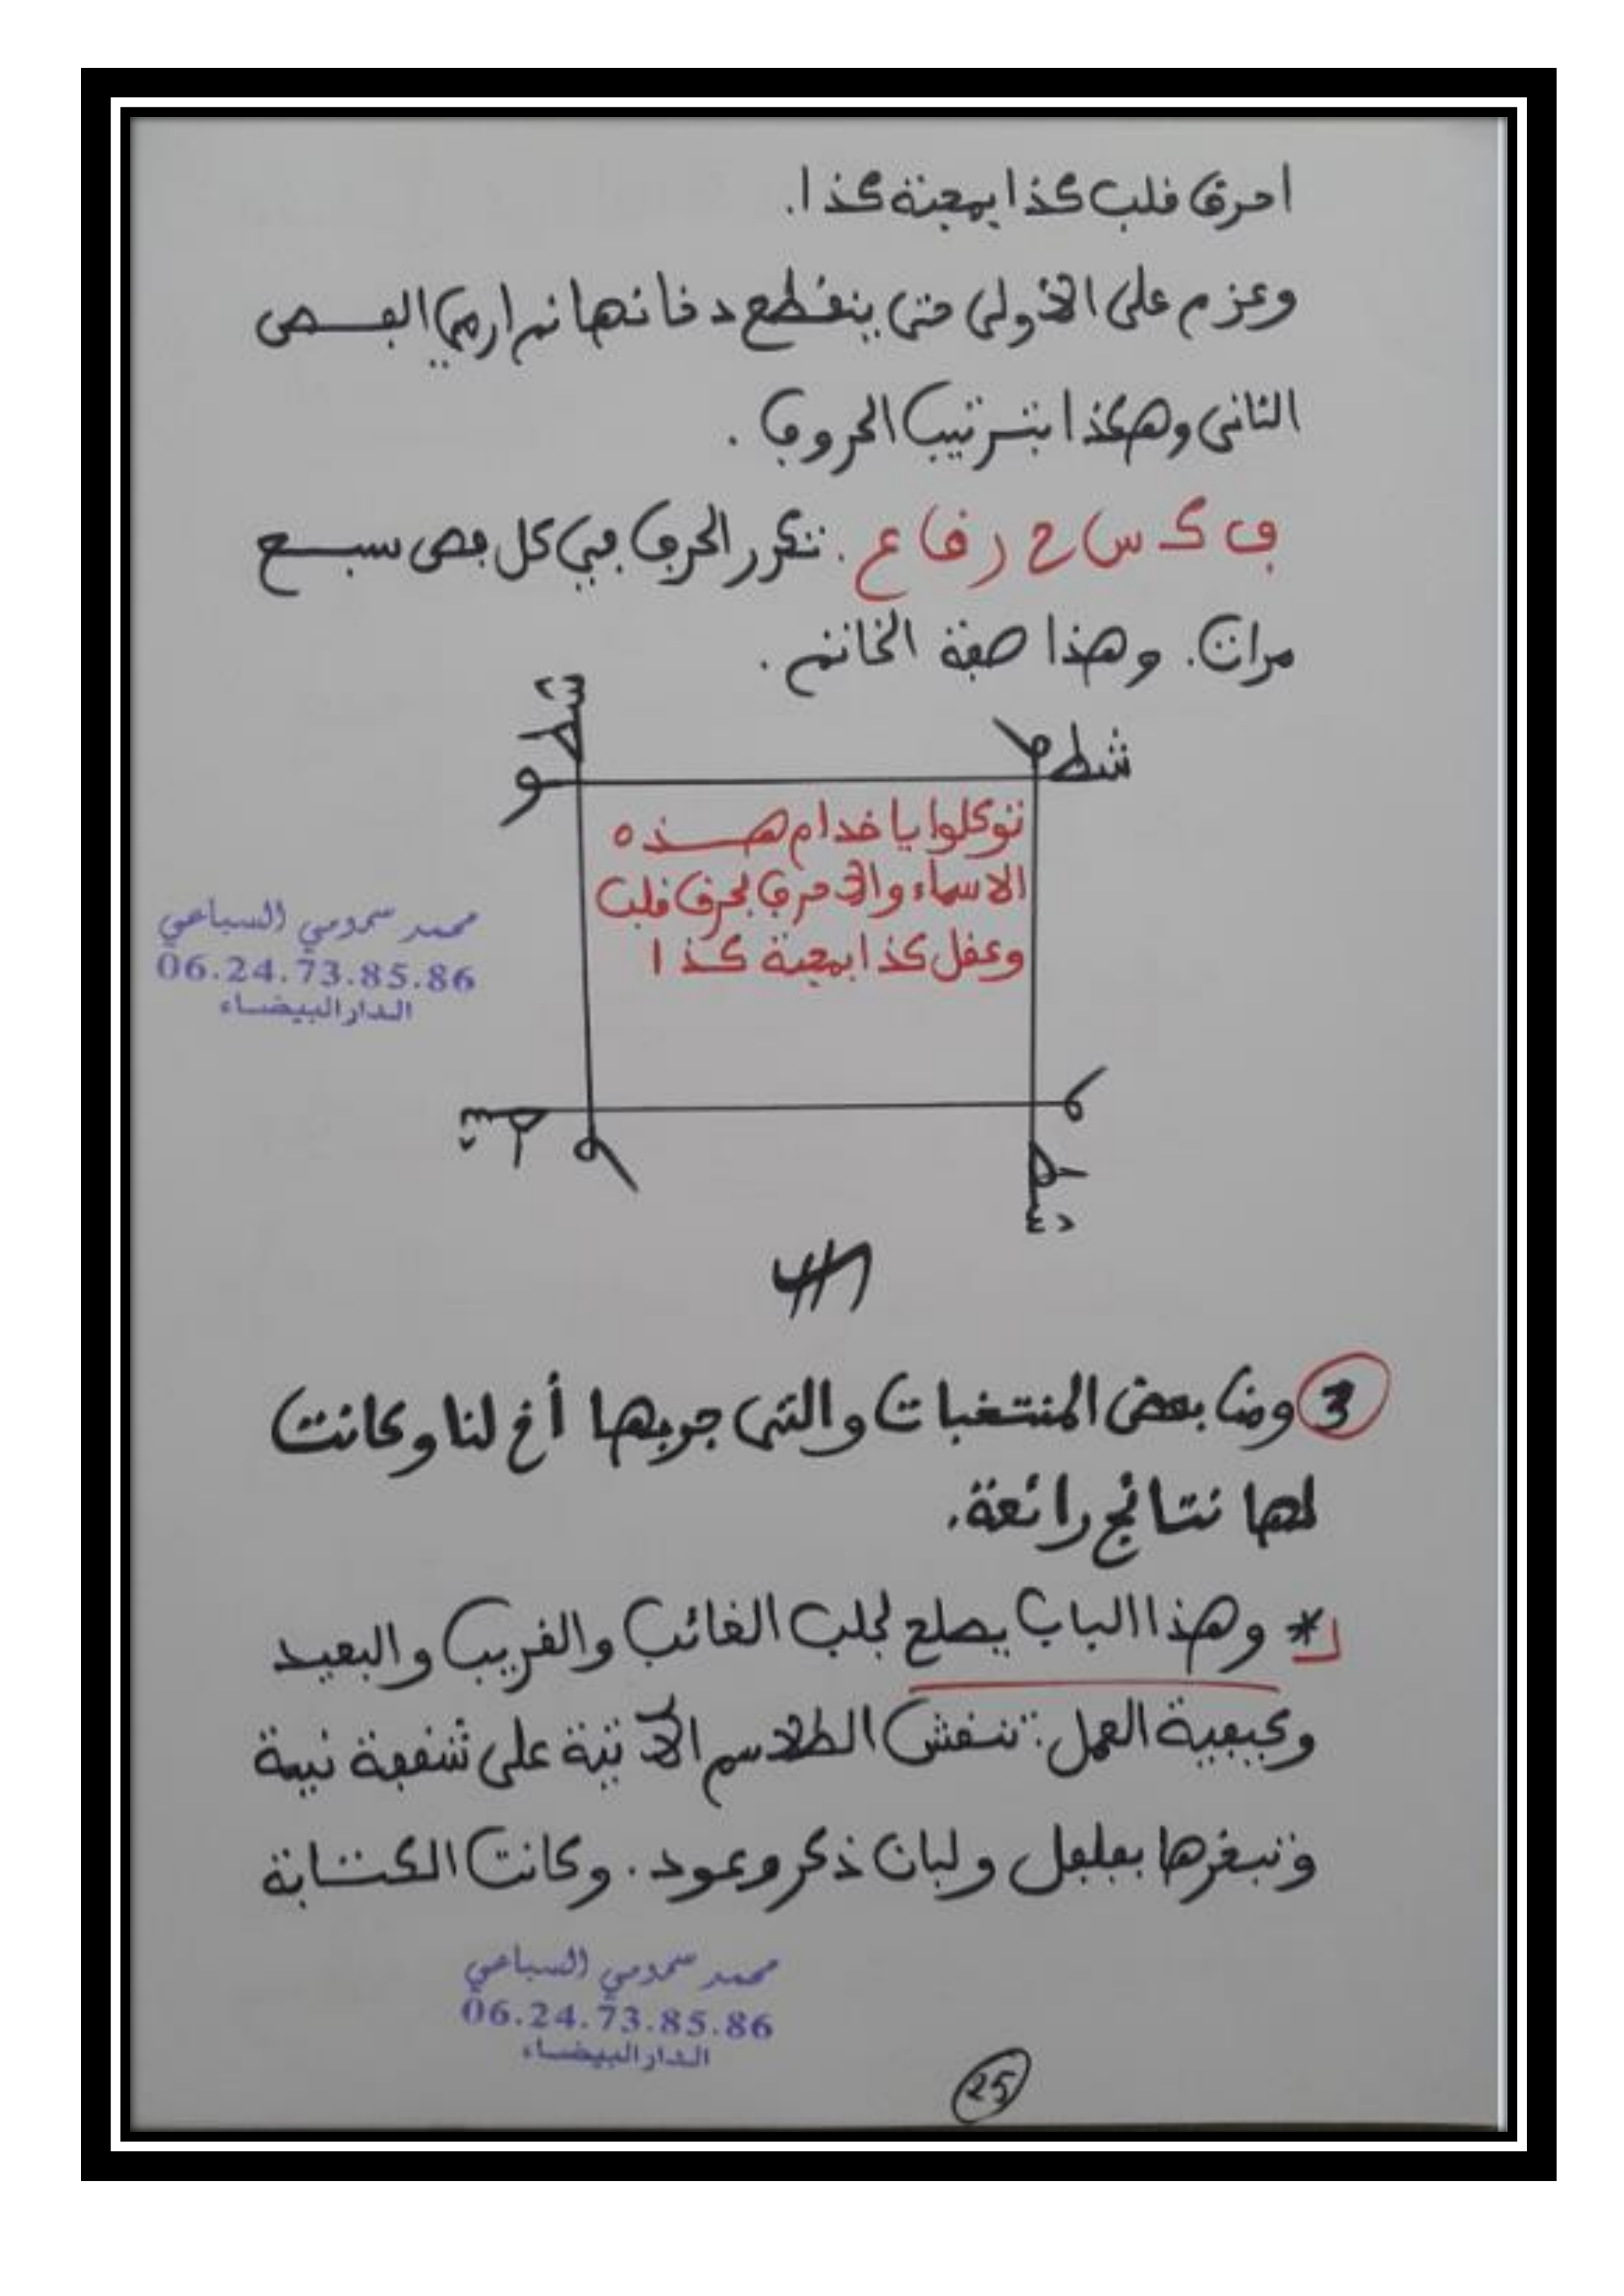 احرق قلب كذا بمحبة كذا.
وعزم على الأولى حتى ينقطع دخانها ثم ارمي الفص
الثاني وهكذا بترتيب الحروف .
ف ك س ح ر ق ا ع . تكرر الحرف في كل فص سبع
مرات. وهذا صفة الخاتم .
شطه
شطو
توكلوا يا خدام هذه
الاسماء والاحرف بحرق قلب
وعقل كذا بمحبة كذا
محمد سمومي السباعي
06.24.73.85.86
الدار البيضاء
3 ومنا بعض المنتخبات والتي جربها أخ لنا وكانت
لها نتائج رائعة.
* وهذا الباب يصلح لجلب الغائب والقريب والبعيد
وكيفية العمل: تنقش الطلاسم الآتية على شقفة نيية
وتبخرها بفلفل ولبان ذكر وعود. وكانت الكتابة
محمد سمومي السباعي
06.24.73.85.86
الدار البيضاء
25